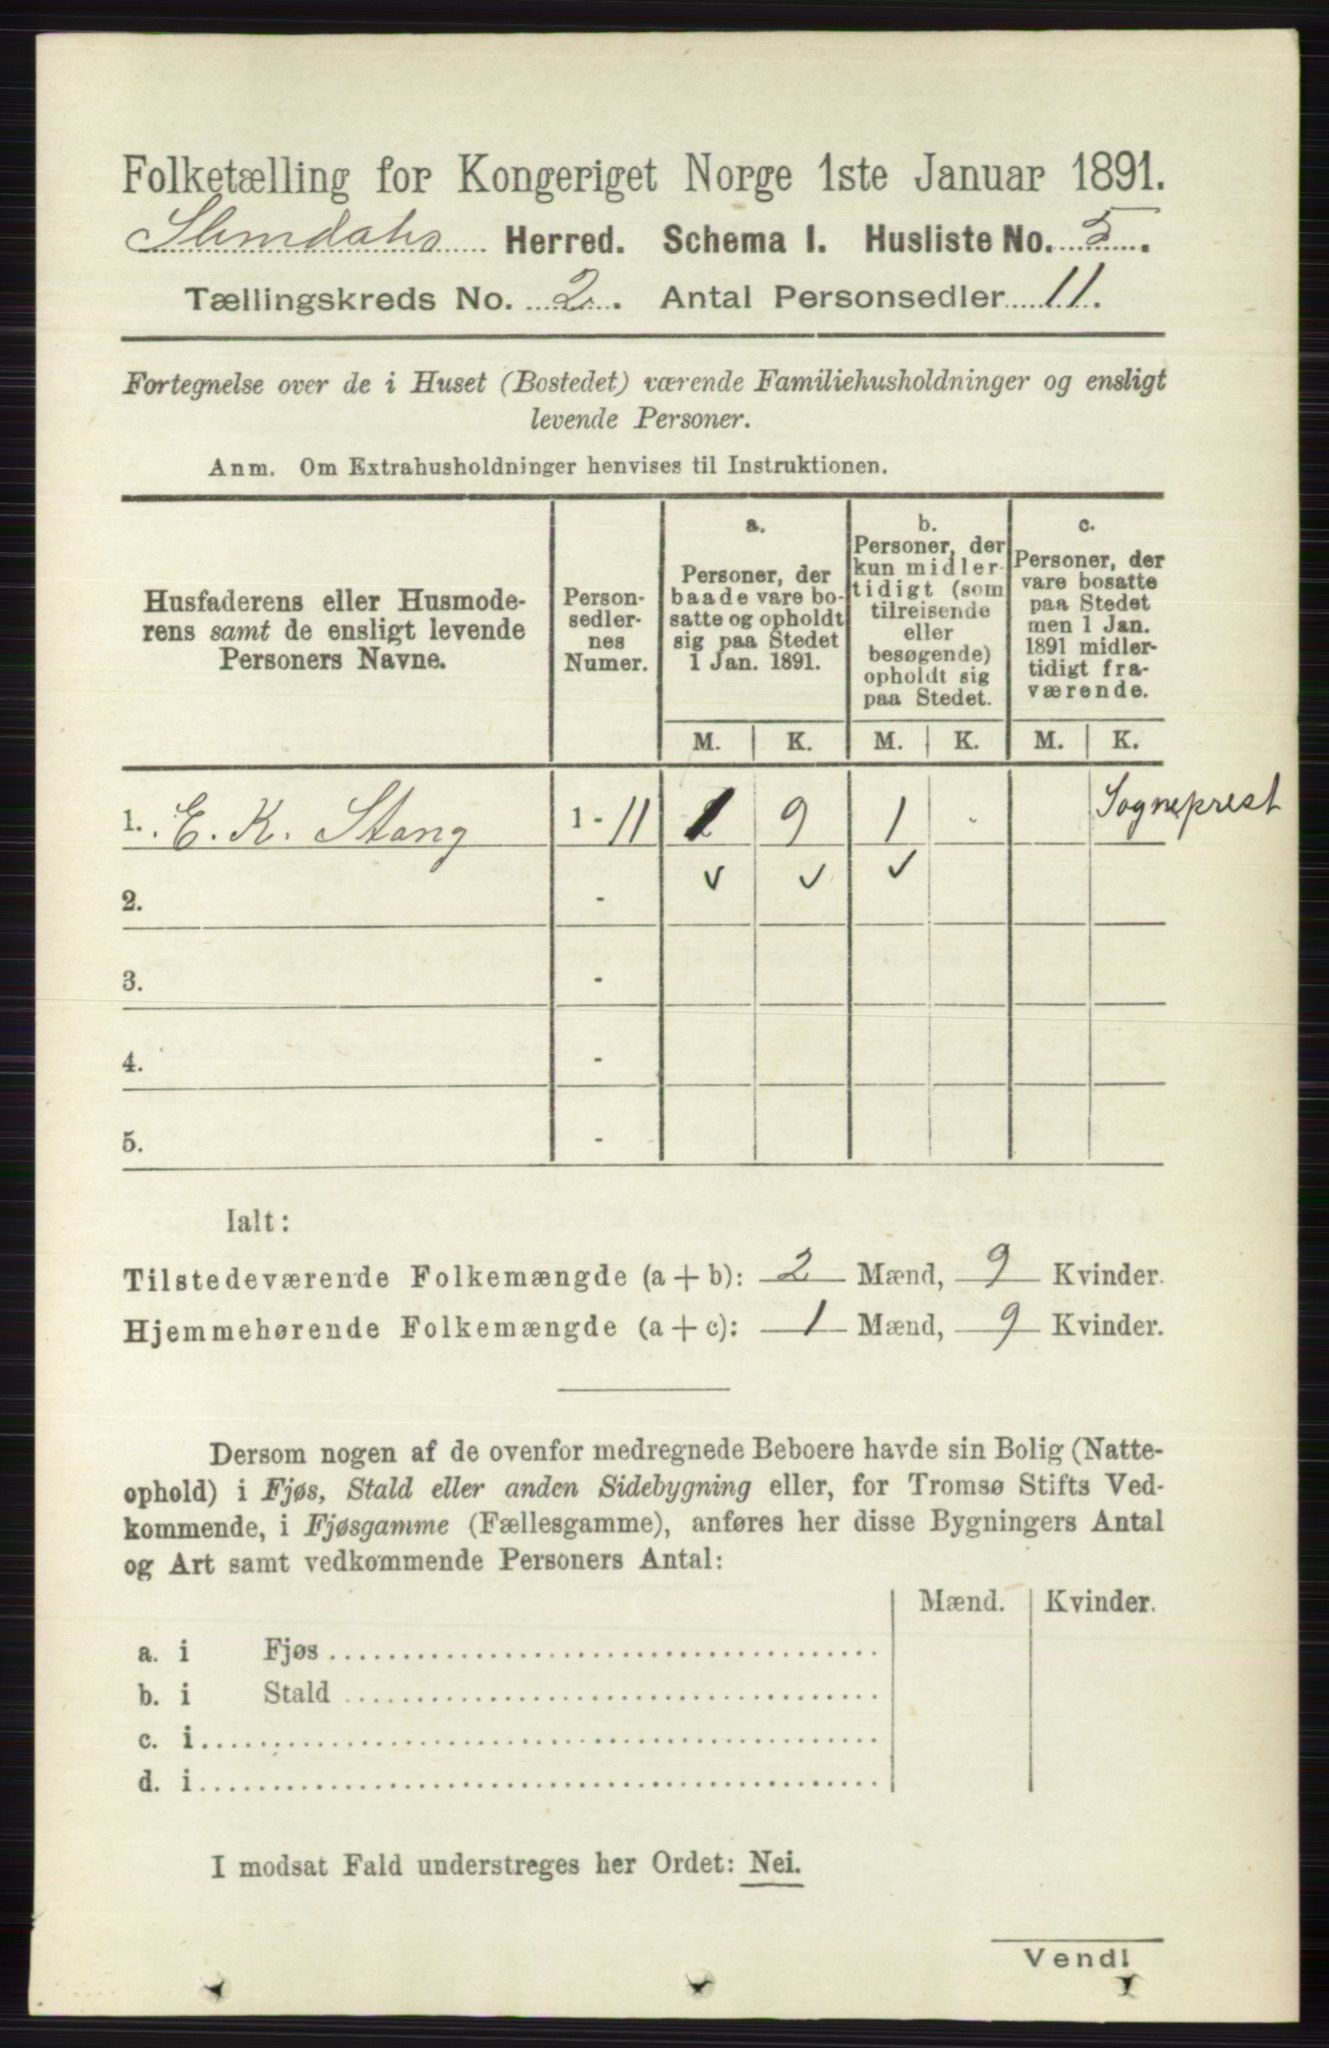 Folketælling for Kongeriget Norge 1ste Januar 1891.
Slemdahls Herred. Schema I. Husliste No. 5.
Tællingskreds No. 2. Antal Personsedler 11.
Fortegnelse over de i Huset (Bostedet) værende Familiehusholdninger og ensligt
levende Personer.
Anm. Om Extrahusholdninger henvises til Instruktionen.
Husfaderens eller Husmode-
rens samt de ensligt levende
Personers Navne.
Person-
sedler-
nes
Numer.
a.
Personer, der
baade vare bo-
satte og opholdt
sig paa Stedet
1 Jan. 1891.
b.
Personer, der
kun midler-
tidigt (som
tilreisende
eller
besøgende)
opholdt sig
paa Stedet.
c.
Personer, der
vare bosatte
paa Stedet
men 1 Jan.
1891 midler-
tidigt fra-
værende.
M. K. M. K. M. K.
1. E. K. Stang 1 - 11 1 9 1 - Sogneprest
✓ ✓ ✓
2. -
3. -
4. -
5. -
Ialt:
Tilstedeværende Folkemængde (a + b): 2 Mænd, 9 Kvinder.
Hjemmehørende Folkemængde (a + c): 1 Mænd, 9 Kvinder.
Dersom nogen af de ovenfor medregnede Beboere havde sin Bolig (Natte-
ophold) i Fjøs, Stald eller anden Sidebygning eller, for Tromsø Stifts Ved-
kommende, i Fjøsgamme (Fællesgamme), anføres her disse Bygningers Antal
og Art samt vedkommende Personers Antal:
Mænd. Kvinder.
a. i Fjøs
b. i Stald
c. i
d. i
I modsat Fald understreges her Ordet: Nei.
Vend!